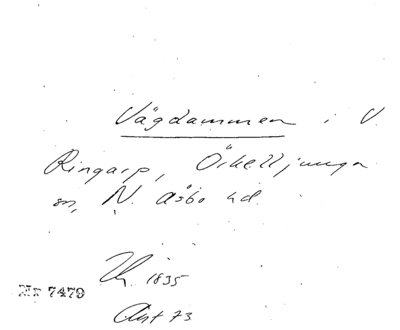 Vägdammen i V.
Ringarp, Örkelljunga
sn, N. Åsbo hd.
1835
Nr 7479
Akt 73